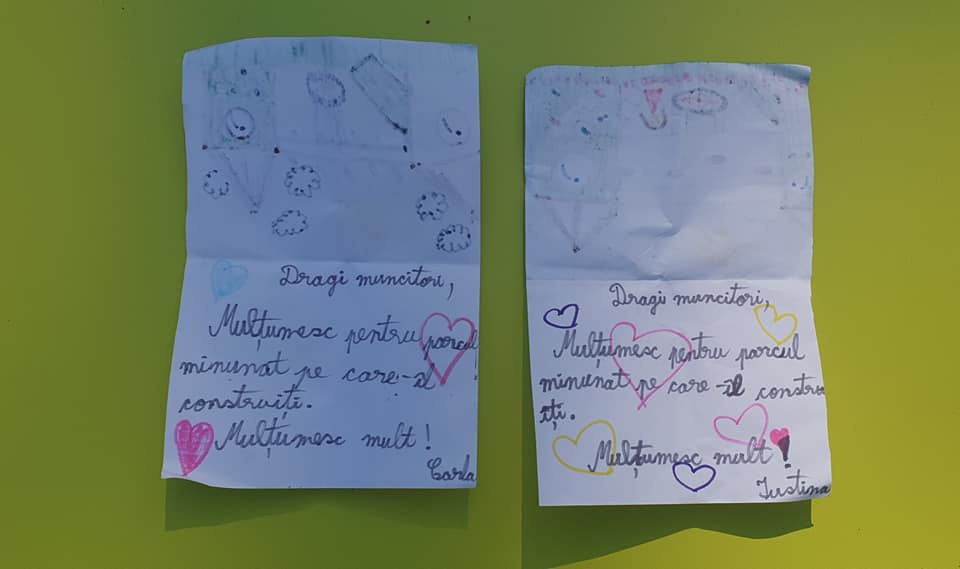 Dragi muncitori,
Mulțumesc pentru parcul
minunat pe care-il
construiți.
Mulțumesc mult!
Carla
Dragi muncitori,
Mulțumesc pentru parcul
minunat pe care-il constru
iți.
Mulțumesc mult!
Iustina